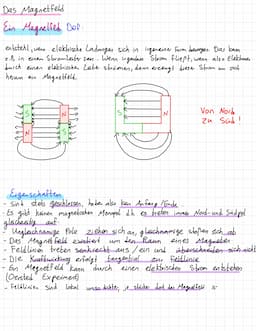 Das Magnetfeld
Ein Magnetfeld Def.
entsteht, wenn elektrische Ladungen sich in irgendeiner Form bewegen. Das kann
z.B. in einem Stromleiter sein. Wenn irgendwo Strom fließt, wenn also Elektronen
durch einen elektrischen Leiter strömen, dann erzeugt dieser Strom um sich
herum ein Magnetfeld.
S
N
S
N
N
Von Nord
zu Süd!
Eigenschaften
- sind stets geschlossen, haben also kein Anfang/Ende
- Es gibt keinen magnetischen Monopol d.h. es treten immer Nord- und Südpol
gleichzeitig auf
- Ungleichnamige Pole ziehen sich an, gleichnamige stoßen sich ab
- Das Magnetfeld existiert um den Raum eines Magneten
- Feldlinien treten senkrecht aus/ein und überschneiden sich nicht
- Die Kraftwirkung erfolgt tangential zu Feldlinie
- Ein Magnetfeld kann durch einen elektrischen Strom entstehen
(Oersted Experiment)
- Feldlinien sind lokal umso dichter, je stärker dort das Magnetfeld is